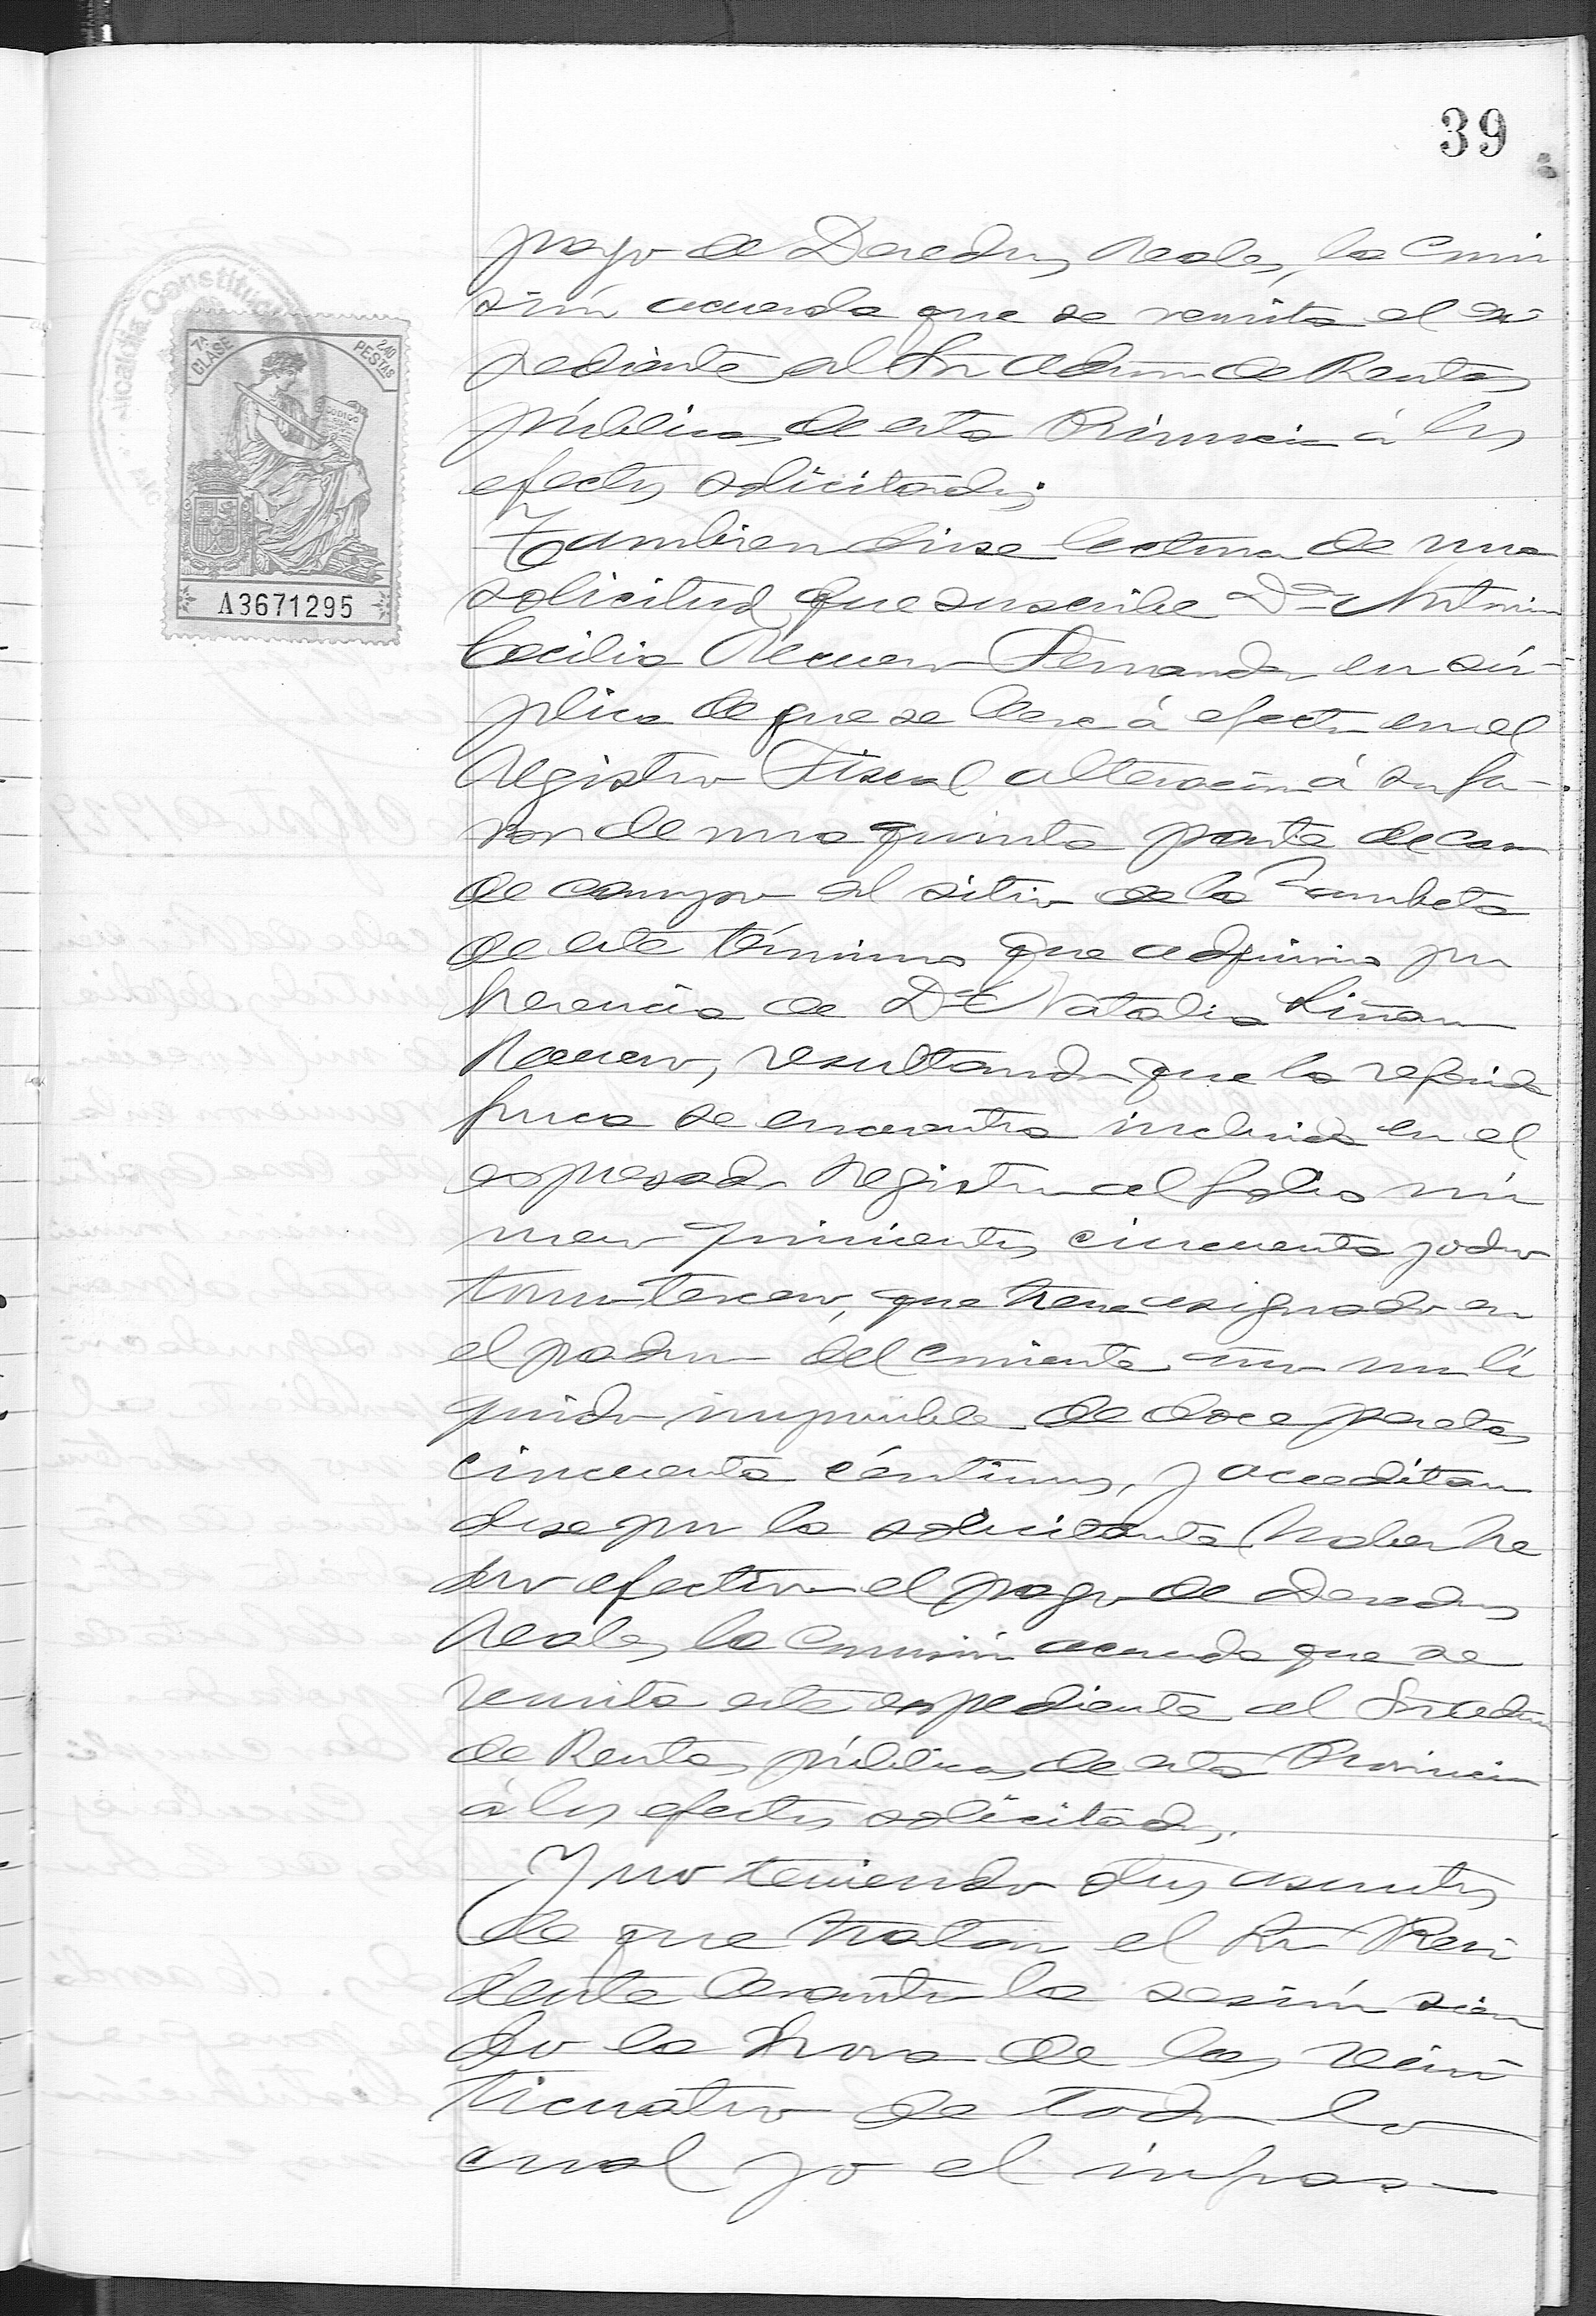 39
Alcaldía Constitucional
7ª CLASE
2,40 PESTAS
CODIGO
A3671295
pago de Derechos Reales, la Comi
sión acuerda que se remita el ex
pediente al Sr. Admon de Rentas
públicas de esta Provincia á los
efectos solicitados;
Tambien dióse lectura de una
solicitud que suscribe Dª Antonia
Cecilia Recuero Fernandez en sú-
plica de que se lleve á efecto en el
Registro Fiscal alteración á su fa-
vor de una quinta parte de casa
de campo al sitio de la
de este término que adquirió por
herencia de Dª Natalia Liñan
Recuero, resultando que la referida
finca se encuentra incluida en el
espresado Registro al folio nú
mero quinientos cincuenta y dos
tomo tercero, que tiene asignado en
el padron del corriente año un lí
quido imponible de doce pesetas
cincuenta céntimos, y acreditan
dose por la solicitante haber he
cho efectivo el pago de Derechos
Reales, la Comisión acuerda que se
remita este espediente al Sr. Admon
de Rentas públicas de esta Provincia
á los efectos solicitados.
Y no teniendo otros asuntos
de que tratar el Sr. Presi
dente levantó la sesión sien
do la hora de las vein
ticuatro de todo lo
cual yo el infras-